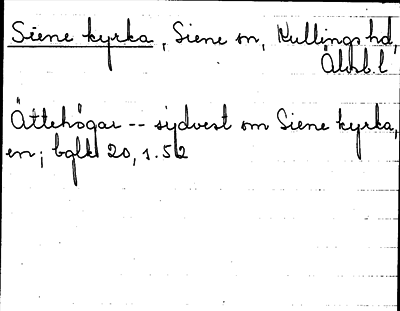 Siene kyrka, Siene sn, Kullings hd,
Älvsb. l
Ättehögar -- sydvest om Siene kyrka,
en; bglk 20, s. 52